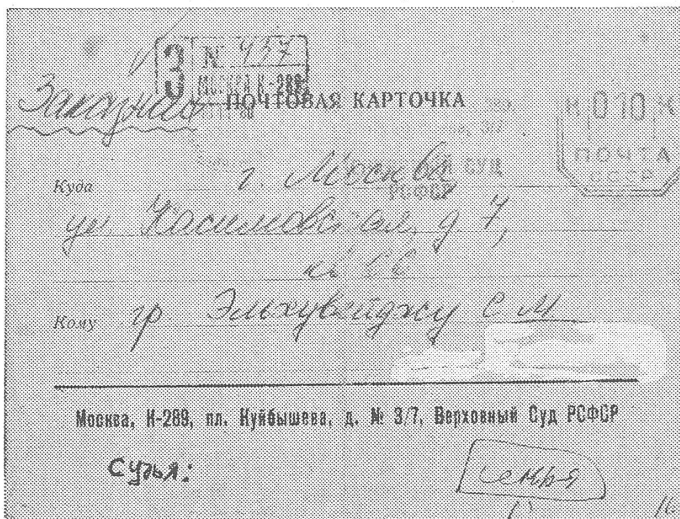 З № 457
МОСКВА К-289
Заказная ПОЧТОВАЯ КАРТОЧКА
К 010 К
ПОЧТА
СССР
СУД
РСФСР
Куда г. Москва
ул. Касимовская, д 7,
кв 66
Кому гр. Эльхувейджу С М
Москва, К-289, пл. Куйбышева, д. № 3/7, Верховный Суд РСФСР
Судья:
семья